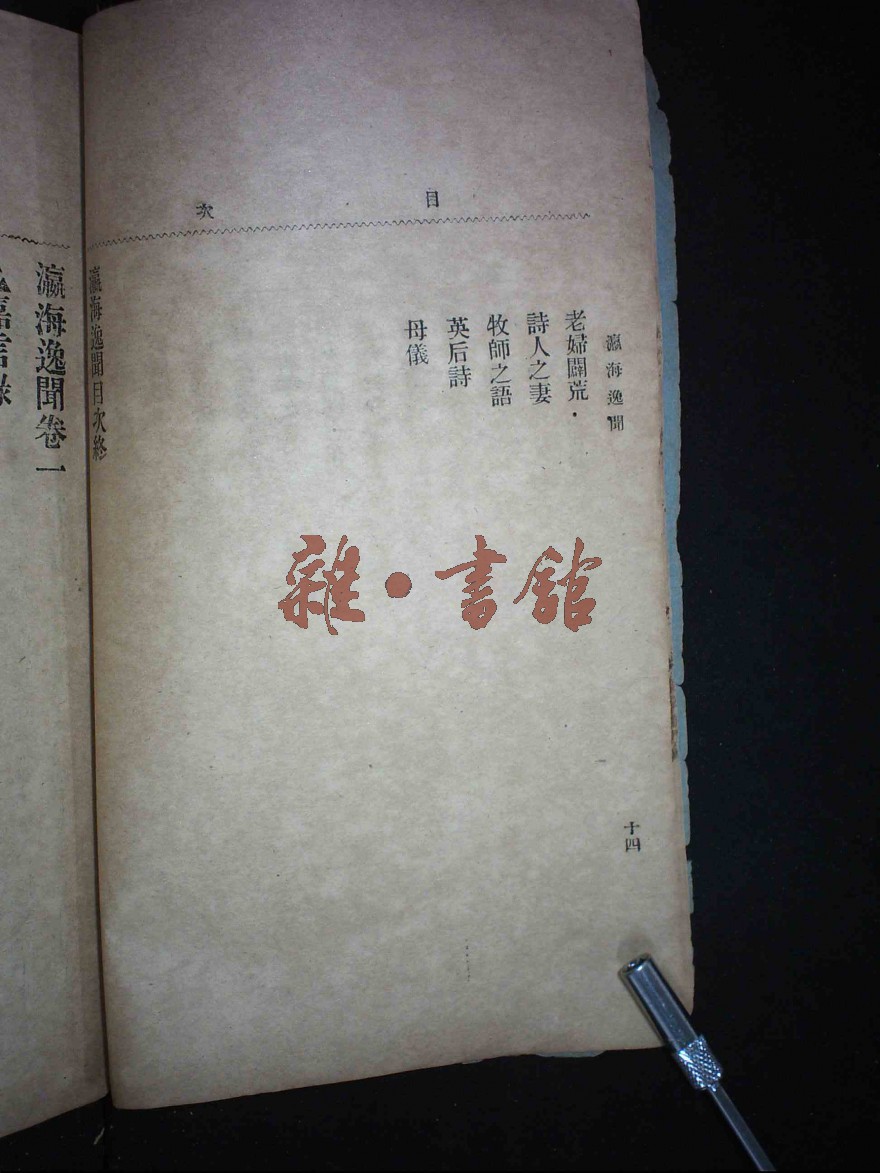 目次
瀛海逸聞
十四
老婦闢荒
詩人之妻
牧師之語
英后詩
母儀
瀛海逸聞目次終
瀛海逸聞卷一
雜·書館